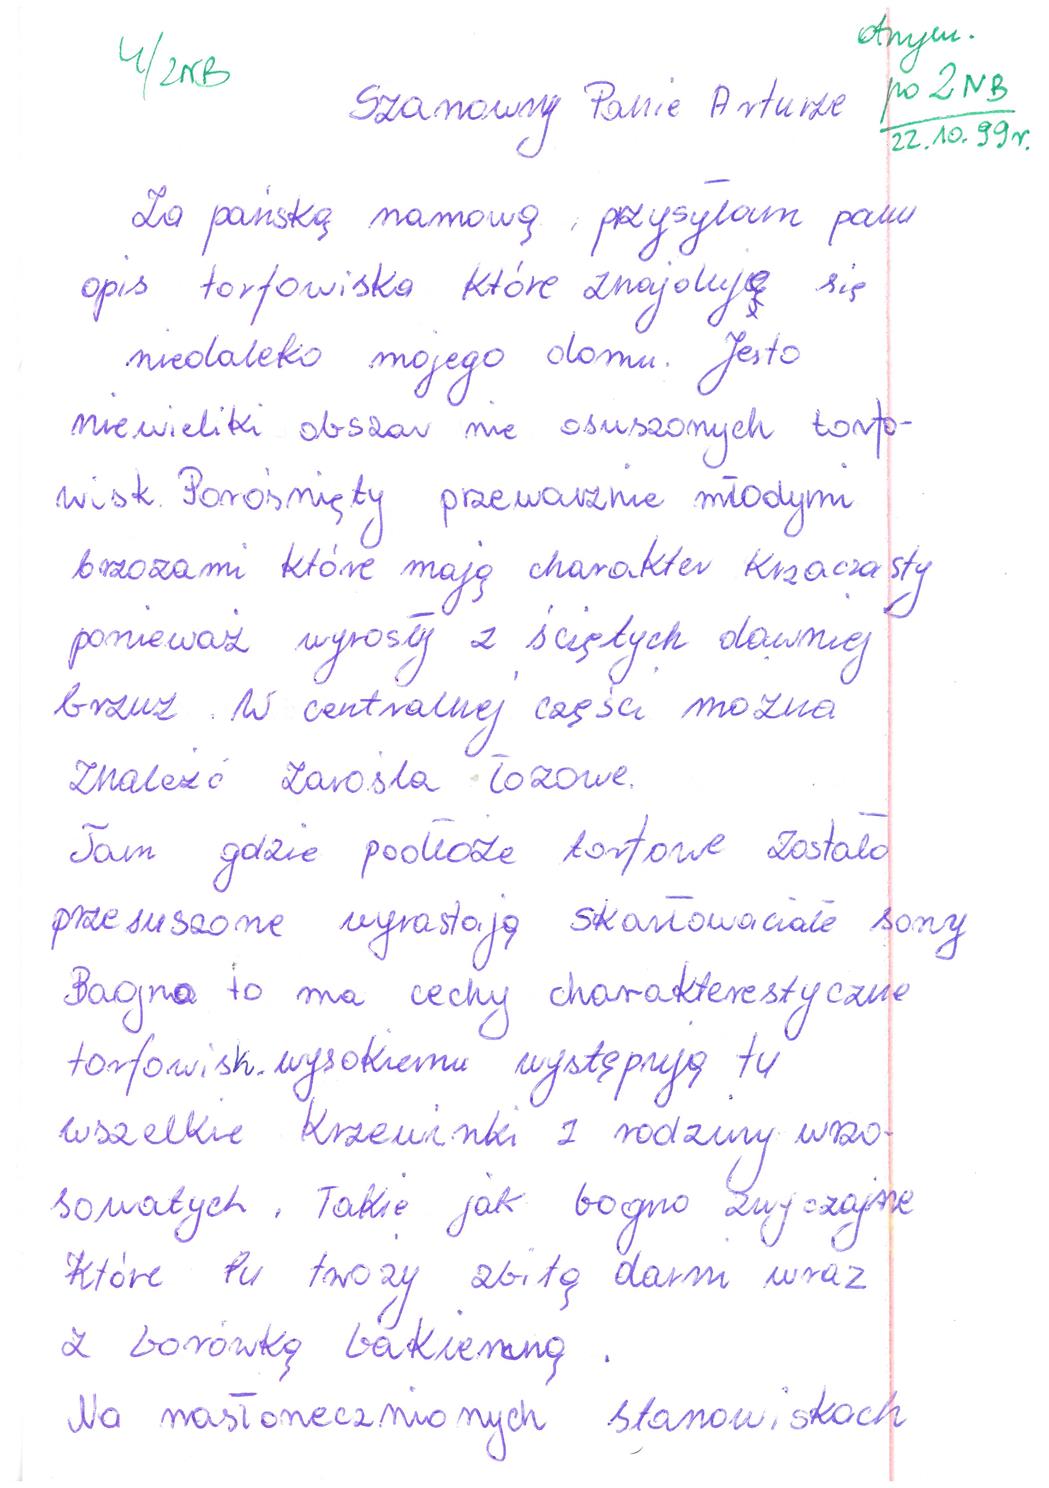 4/2NB
otrzym.
po 2NB
22.10.99r.
Szanowny Panie Arturze
Za pańską namową, przysyłam panu
opis torfowiska które znajduję się
niedaleko mojego domu. Jesto
niewieliki obszar nie osuszonych torfo-
wisk. Porośnięty przeważnie młodymi
brzozami które mają charakter krzaczasty
ponieważ wyrosły z ściętych dawniej
brzuz. W centralnej części można
znaleźć zarośla łozowe.
Tam gdzie podłoże torfowe zostało
przesuszone wyrastają skarłowaciałe sony
Bagno to ma cechy charakterestyczne
torfowisk. wysokiemu występują tu
wszelkie krzewinki z rodziny wrzo-
sowatych. Takie jak bogno zwyczajne
które tu tworzy zbitą darni wraz
z borówką bakienną.
Na nasłonecznionych stanowiskach